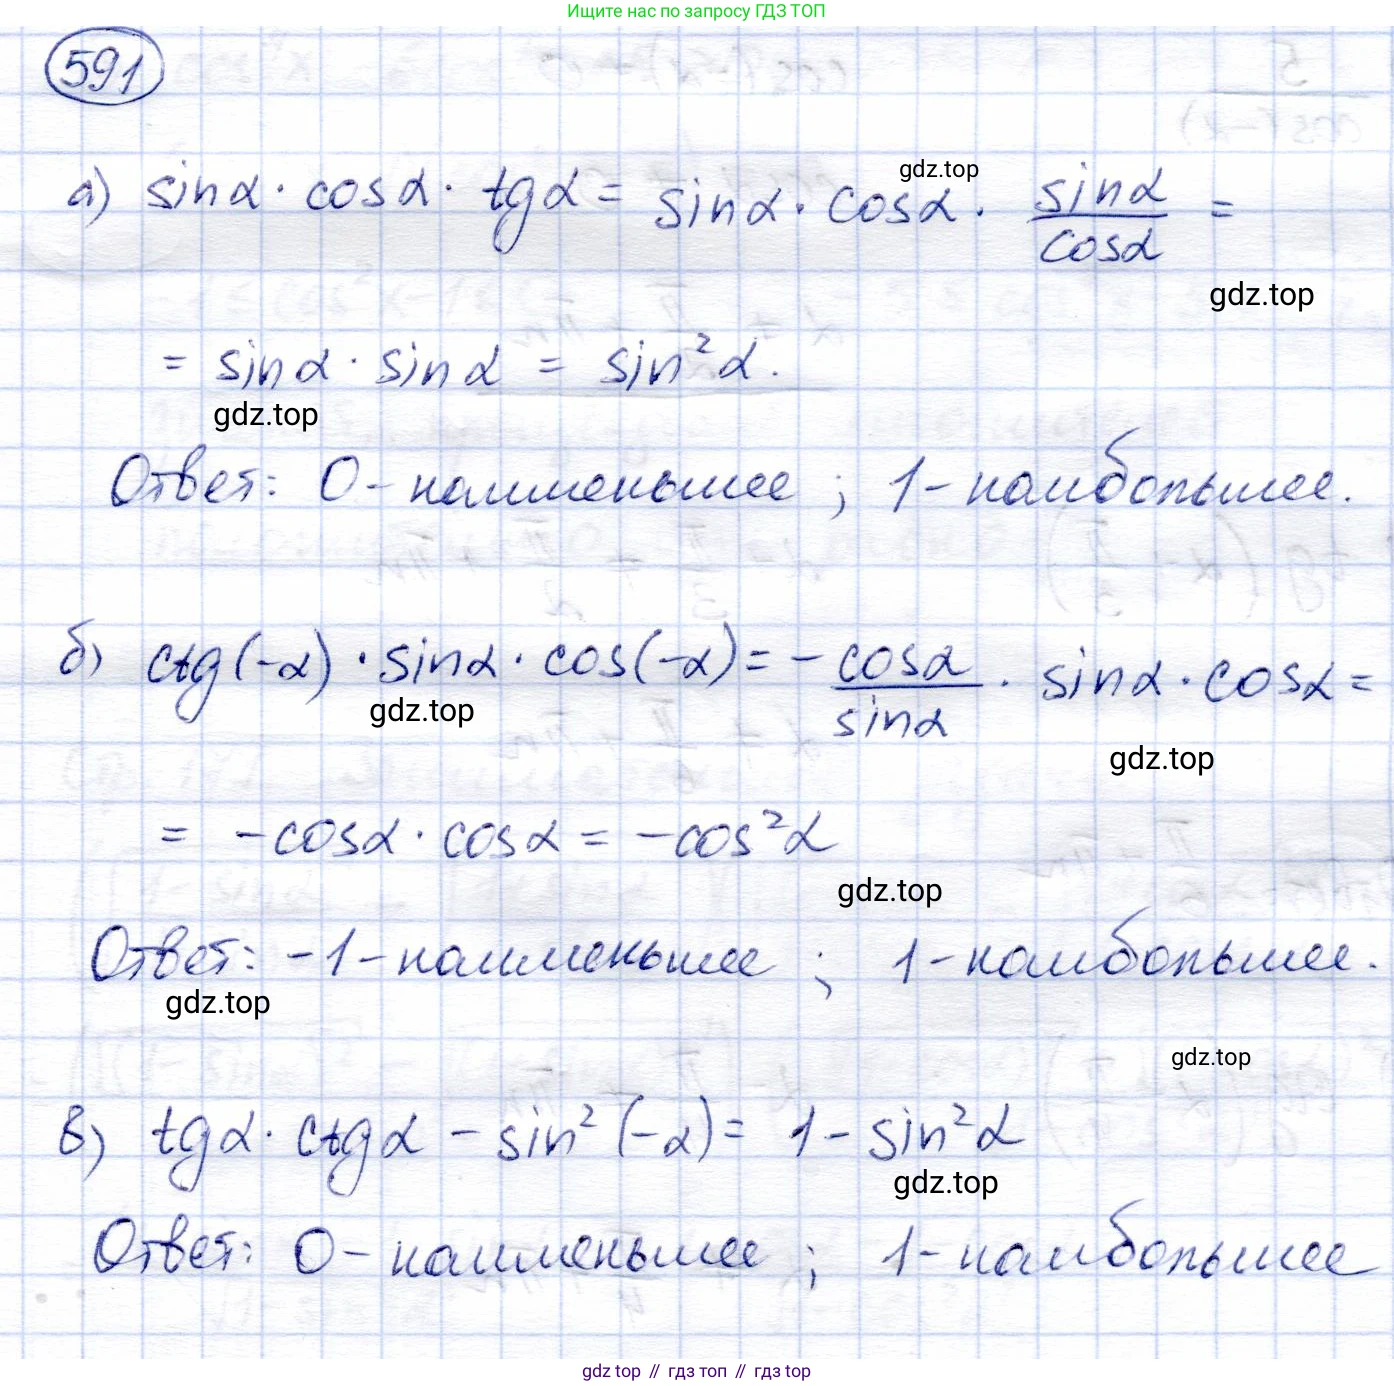 Ищите нас по запросу ГДЗ ТОП
591
а) sinα · cosα · tgα = sinα · cosα · sinα/cosα =
gdz.top
gdz.top
= sinα · sinα = sin²α.
gdz.top
Ответ: 0 - наименьшее ; 1 - наибольшее.
б) ctg(-α) · sinα · cos(-α) = - cosα/sinα · sinα · cosα =
gdz.top
gdz.top
= -cosα · cosα = -cos²α
gdz.top
Ответ: -1 - наименьшее ; 1 - наибольшее.
gdz.top
gdz.top
в) tgα · ctgα - sin²(-α) = 1 - sin²α
gdz.top
Ответ: 0 - наименьшее ; 1 - наибольшее
gdz top // гдз топ // gdz top